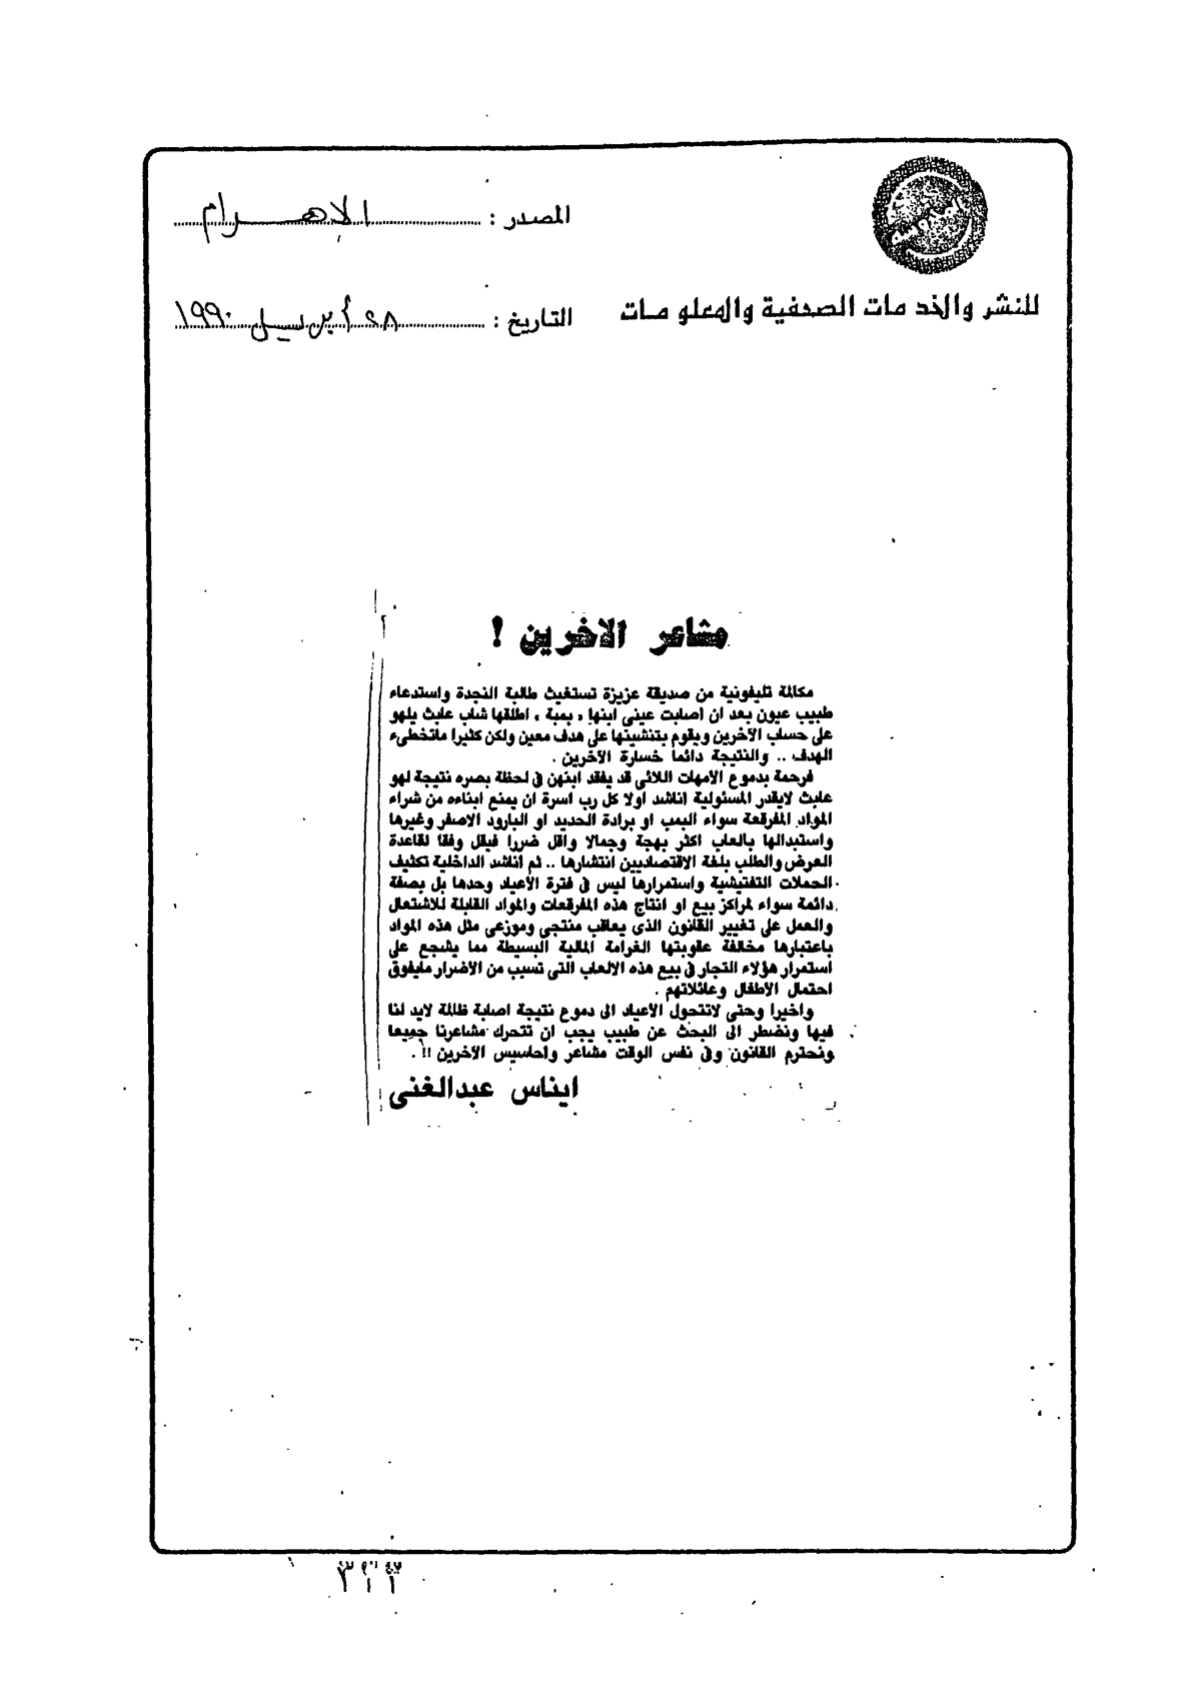 المصدر : الأهرام
للنشر والخدمات الصحفية والمعلومات
التاريخ : ٢٨ أبريل ١٩٩٠
مشاعر الاخرين !
مكالمة تليفونية من صديقة عزيزة تستغيث طالبة النجدة واستدعاء
طبيب عيون بعد ان اصابت عينى ابنها « بمبة » اطلقها شاب عابث يلهو
على حساب الآخرين ويقوم بتنشينها على هدف معين ولكن كثيرا ماتخطىء
الهدف .. والنتيجة دائما خسارة الآخرين .
فرحمة بدموع الأمهات اللائى قد يفقد ابنهن فى لحظة بصره نتيجة لهو
عابث لايقدر المسئولية اناشد اولا كل رب اسرة ان يمنع ابناءه من شراء
المواد المفرقعة سواء البمب او برادة الحديد او البارود الاصفر وغيرها
واستبدالها بالعاب اكثر بهجة وجمالا واقل ضررا فيقل وفقا لقاعدة
العرض والطلب بلغة الاقتصاديين انتشارها .. ثم اناشد الداخلية تكثيف
الحملات التفتيشية واستمرارها ليس فى فترة الأعياد وحدها بل بصفة
دائمة سواء لمراكز بيع او انتاج هذه المفرقعات والمواد القابلة للاشتعال
والعمل على تغيير القانون الذى يعاقب منتجى وموزعى مثل هذه المواد
باعتبارها مخالفة عقوبتها الغرامة المالية البسيطة مما يشجع على
استمرار هؤلاء التجار فى بيع هذه الالعاب التى تسبب من الأضرار مايفوق
احتمال الأطفال وعائلاتهم .
واخيرا وحتى لاتتحول الأعياد الى دموع نتيجة اصابة ظالمة لايد لنا
فيها ونضطر الى البحث عن طبيب يجب ان تتحرك مشاعرنا جميعا
ونحترم القانون وفى نفس الوقت مشاعر واحاسيس الآخرين !! .
ايناس عبدالغنى